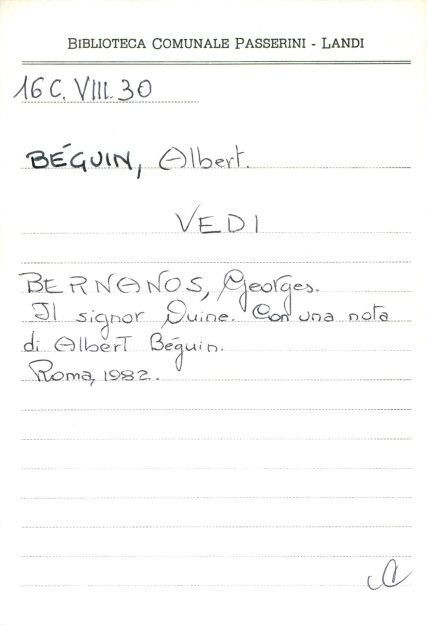 BIBLIOTECA COMUNALE PASSERINI - LANDI
16 C. VIII. 30
BÉGUIN, Albert.
VEDI
BERNANOS, Georges.
Il signor Ouine. Con una nota
di Albert Béguin.
Roma, 1982.